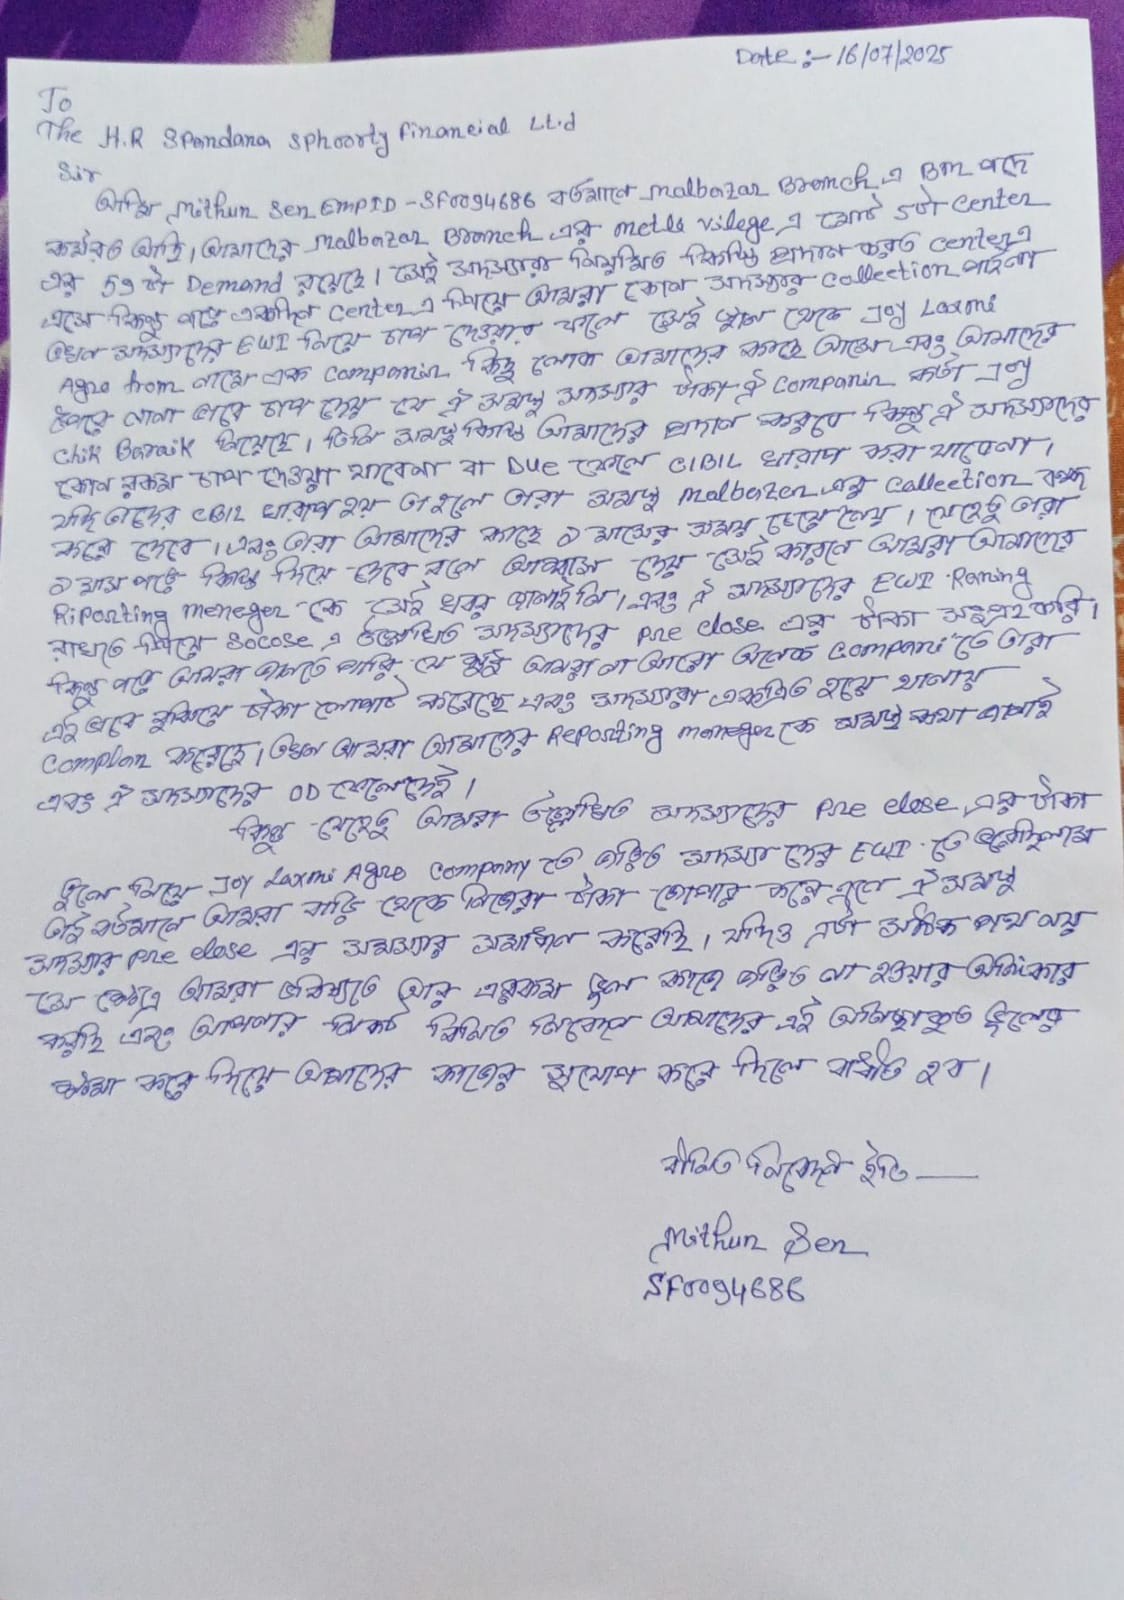 Date :- 16/07/2025
To
The H.R Spandana Sphoorty Financial Lt.d
Sir
আমি Mithun Sen EMPID - SF0094686 বর্তমানে Malbazar Branch এ BM পদে
কর্মরত আছি। আমাদের Malbazar Branch এর Metla Vilege এ মোট ৫টা Center
এর 59 টা Demand রয়েছে। সেই সদস্যরা নিয়মিত কিস্তি প্রদান করত Center এ
এসে কিন্তু পরে একদিন Center এ গিয়ে আমরা কোন সদস্যার Collection পাইনা
তখন সদস্যাদের EWI নিয়ে চাপ দেওয়ার ফলে সেই স্থান থেকে Joy Laxmi
Agro from নামে এক Companir কিছু লোক আমাদের কাছে আসে এবং আমাদের
উপরে নানা ভাবে চাপ দেয় যে ঐ সমস্ত সদস্যার টাকা ঐ Companir কর্তা Joy
Chik Baraik নিয়েছে। তিনি সমস্ত কিস্তি আমাদের প্রদান করবে কিন্তু ঐ সদস্যাদের
কোন রকম চাপ দেওয়া যাবেনা বা Due ফেলে CIBIL খারাপ করা যাবেনা।
যদি তাদের CBIL খারাপ হয় তাহলে তারা সমস্ত Malbazar এর Callection বন্ধ
করে দেবে। এবং তারা আমাদের কাছে ১ মাসের সময় চেয়ে নেয়। যেহেতু তারা
১ মাস পরে কিস্তি দিয়ে দেবে বলে আশ্বাস দেয় সেই কারনে আমরা আমাদের
Riporting meneger কে সেই খবর জানাই নি। এবং ঐ সদস্যাদের EWI Raning
রাখতে গিয়ে Socose এ উল্লেখিত সদস্যাদের Pre close এর টাকা সংগ্রহ করি।
কিন্তু পরে আমরা জানতে পারি যে শুধু আমরা না আরো অনেক Compani তে তারা
এই ভাবে বুঝিয়ে টাকা লোপাট করেছে এবং সদস্যারা একত্রিত হয়ে থানায়
Complan করেছে। তখন আমরা আমাদের Reporting meneger কে সমস্ত কথা জানাই
এবং ঐ সদস্যাদের OD ফেলেদেই।
কিন্তু যেহেতু আমরা উল্লেখিত সদস্যাদের Pre close এর টাকা
তুলে নিয়ে Joy Laxmi Agro Company তে জড়িত সদস্যাদের EWI তে ভরেদিলাম
তাই বর্তমানে আমরা বাড়ি থেকে নিজেরা টাকা জোগার করে এনে ঐ সমস্ত
সদস্যার Pre close এর সমস্যার সমাধান করেছি। যদিও এটা সঠিক পথ নয়
সে ক্ষেত্রে আমরা ভবিষ্যতে আর এরকম ভুল কাজে জড়িত না হওয়ার অঙ্গিকার
করছি এবং আপনার নিকট বিনিত নিবেদন আমাদের এই অনিচ্ছাকৃত ভুলের
ক্ষমা করে দিয়ে আমাদের কাজের সুযোগ করে দিলে বাধিত হব।
বিনিত নিবেদন ইতি —
Mithun Sen
SF0094686